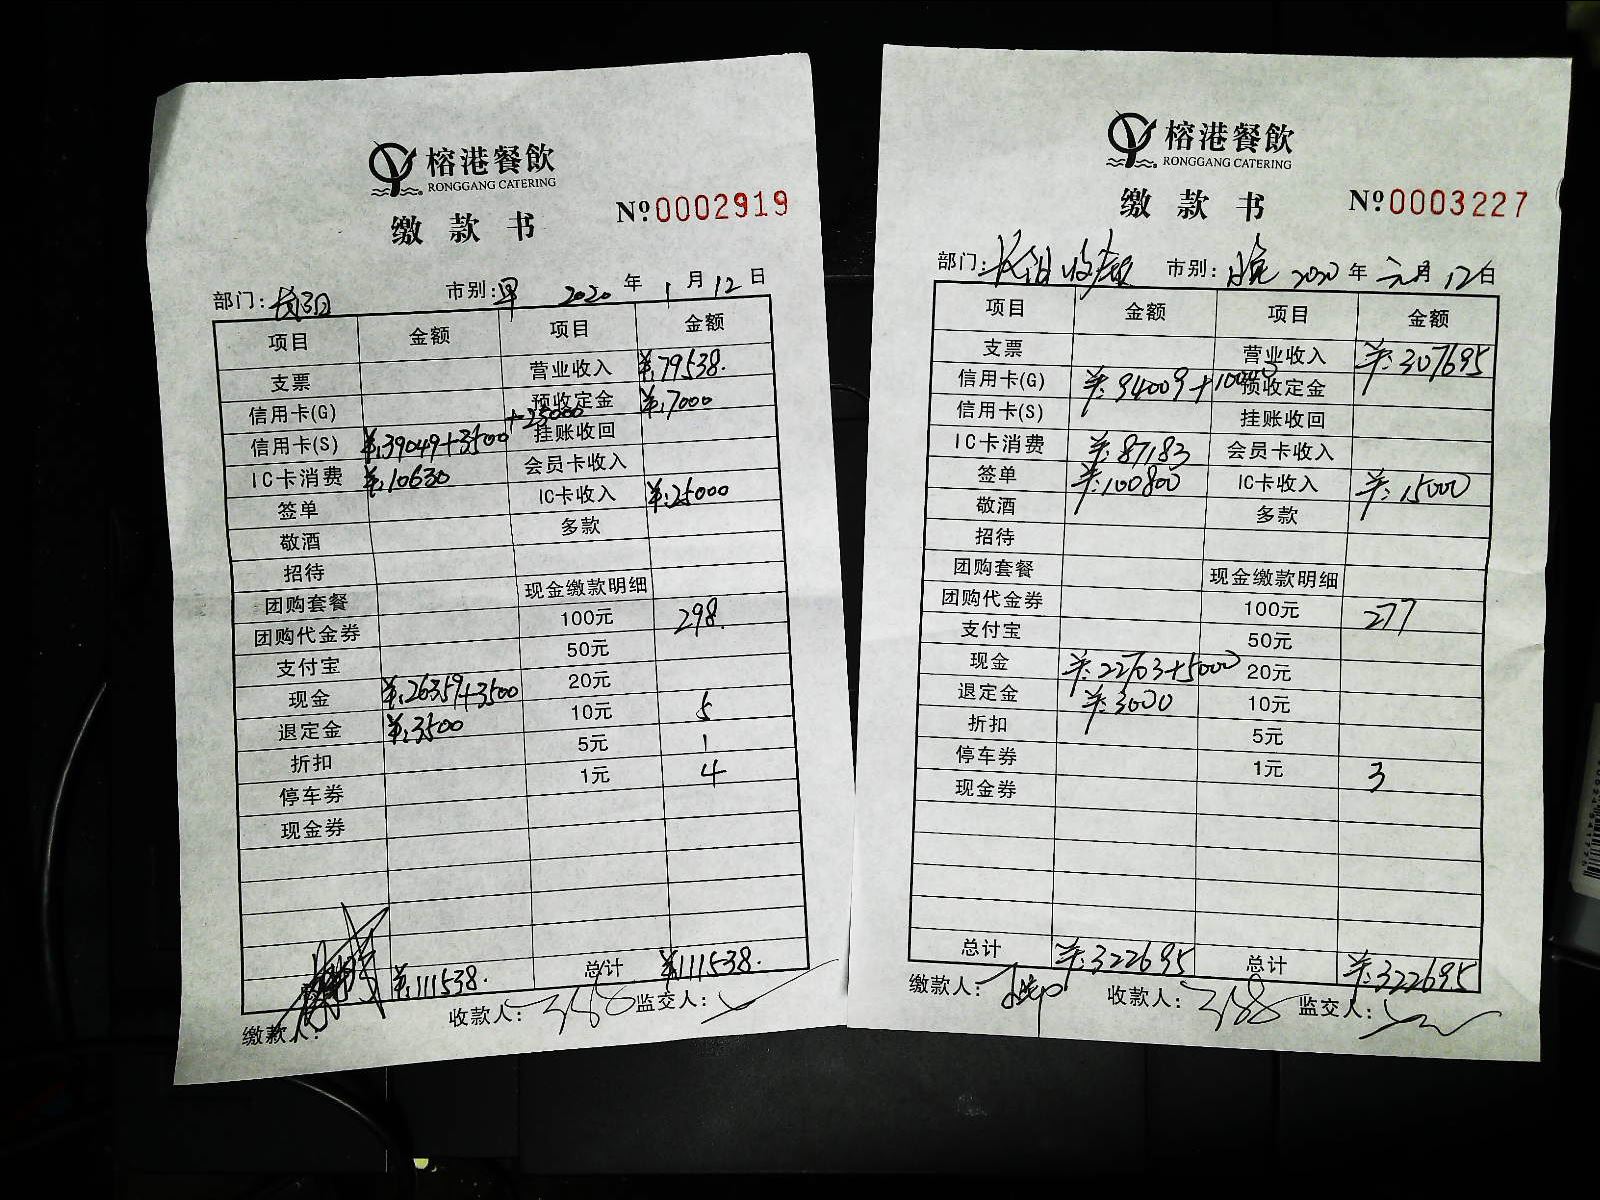 榕港餐飲
RONGGANG CATERING
缴款书
№0002919
部门: 市别:早 2020年1月12日
项目 金额 项目 金额
支票 营业收入 ¥:79538.
信用卡(G) 预收定金 ¥:7000
信用卡(S) ¥:39049+3500+25000 挂账收回
IC卡消费 ¥:10630 会员卡收入
签单 IC卡收入 ¥:25000
敬酒 多款
招待
团购套餐 现金缴款明细
团购代金券 100元 298.
支付宝 50元
现金 ¥:26359+3500 20元
退定金 ¥:3500 10元 5
折扣 5元 1
停车券 1元 4
现金券
¥:111538. 总计 ¥:111538.
缴款人: 收款人: 监交人:
榕港餐飲
RONGGANG CATERING
缴款书
№0003227
部门: 市别:晚 2020年元月12日
项目 金额 项目 金额
支票 营业收入 ¥:307695
信用卡(G) ¥:94009+10000 预收定金
信用卡(S) 挂账收回
IC卡消费 ¥:87183 会员卡收入
签单 ¥:100800 IC卡收入 ¥:15000
敬酒 多款
招待
团购套餐 现金缴款明细
团购代金券 100元 277
支付宝 50元
现金 ¥:22703+5000 20元
退定金 ¥:3000 10元
折扣 5元
停车券 1元 3
现金券
总计 ¥:322695 总计 ¥:322695
缴款人: 收款人: 监交人: